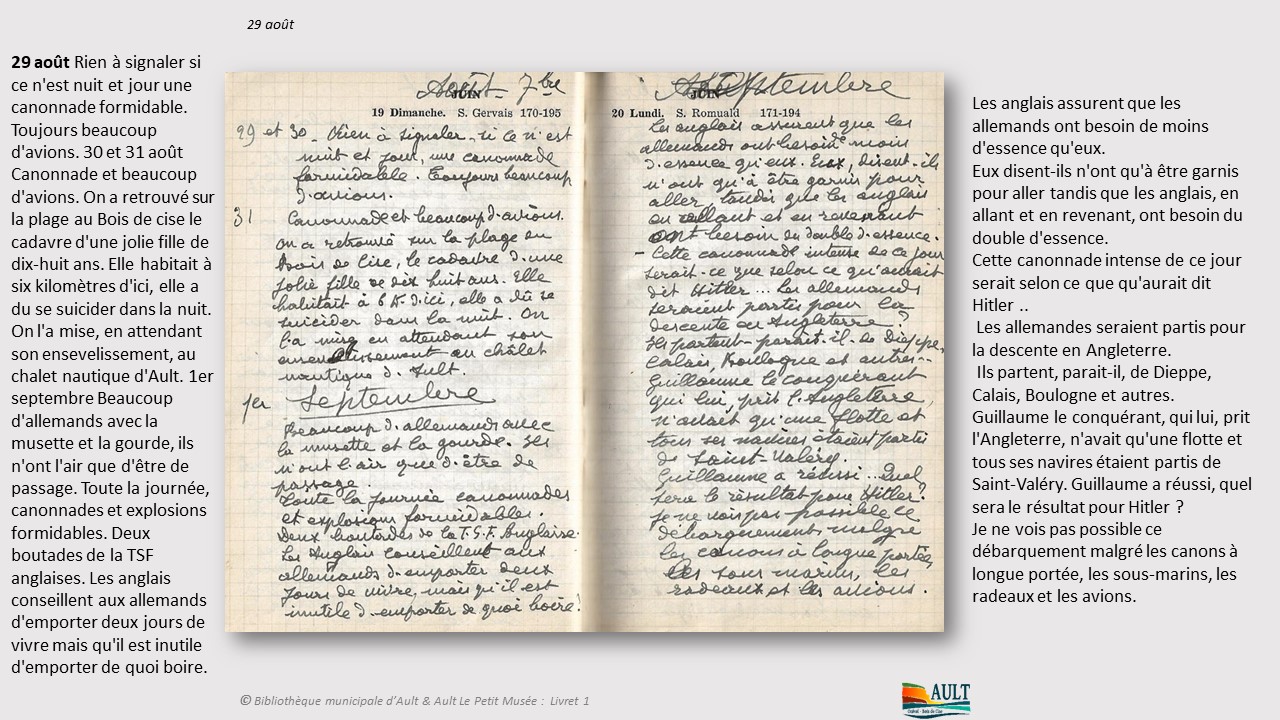 29 août
29 août Rien à signaler si
ce n'est nuit et jour une
canonnade formidable.
Toujours beaucoup
d'avions. 30 et 31 août
Canonnade et beaucoup
d'avions. On a retrouvé sur
la plage au Bois de cise le
cadavre d'une jolie fille de
dix-huit ans. Elle habitait à
six kilomètres d'ici, elle a
du se suicider dans la nuit.
On l'a mise, en attendant
son ensevelissement, au
chalet nautique d'Ault. 1er
septembre Beaucoup
d'allemands avec la
musette et la gourde, ils
n'ont l'air que d'être de
passage. Toute la journée,
canonnades et explosions
formidables. Deux
boutades de la TSF
anglaises. Les anglais
conseillent aux allemands
d'emporter deux jours de
vivre mais qu'il est inutile
d'emporter de quoi boire.
Août 7bre
JUIN
19 Dimanche. S. Gervais 170-195
29 et 30 - Rien à signaler, si ce n'est
nuit et jour, une canonnade
formidable. Toujours beaucoup
d'avions.
31 Canonnade et beaucoup d'avions.
On a retrouvé sur la plage du
Bois de Cise, le cadavre d'une
jolie fille de dix huit ans. Elle
habitait à 6 K. d'ici, elle a dû se
suicider dans la nuit. On
l'a mise en attendant son
ensevelissement au châlet
nautique d'Ault.
1er Septembre
Beaucoup d'allemands avec
la musette et la gourde. Ils
n'ont l'air que d'être de
passage.
Toute la journée canonnades
et explosions formidables.
Deux boutades de la T.S.F. Anglaise.
Les Anglais conseillent aux
allemands d'emporter deux
jours de vivre, mais qu'il est
inutile d'emporter de quoi boire!
Septembre
JUIN
20 Lundi. S. Romuald 171-194
Les anglais assurent que les
allemands ont besoin de moins
d'essence qu'eux. Eux, disent-ils
n'ont qu'à être garnis pour
aller, tandis que les anglais
en allant et en revenant
ont besoin du double d'essence.
- Cette canonnade intense de ce jour
serait-ce que selon ce qu'aurait
dit Hitler ... Les allemands
seraient partis pour la
descente en Angleterre ?
Ils partent parait-il de Dieppe,
Calais, Boulogne et autres...
Guillaume le conquérant
qui lui, prit l'Angleterre,
n'avait qu'une flotte et
tous ses navires étaient partis
de Saint-Valéry.
Guillaume a réussi... Quel
sera le résultat pour Hitler ?
Je ne vois pas possible ce
débarquement malgré
les canons à longue portée,
les sous marins, les
radeaux et les avions.
Les anglais assurent que les
allemands ont besoin de moins
d'essence qu'eux.
Eux disent-ils n'ont qu'à être garnis
pour aller tandis que les anglais, en
allant et en revenant, ont besoin du
double d'essence.
Cette canonnade intense de ce jour
serait selon ce que qu'aurait dit
Hitler ..
Les allemandes seraient partis pour
la descente en Angleterre.
Ils partent, parait-il, de Dieppe,
Calais, Boulogne et autres.
Guillaume le conquérant, qui lui, prit
l'Angleterre, n'avait qu'une flotte et
tous ses navires étaient partis de
Saint-Valéry. Guillaume a réussi, quel
sera le résultat pour Hitler ?
Je ne vois pas possible ce
débarquement malgré les canons à
longue portée, les sous-marins, les
radeaux et les avions.
© Bibliothèque municipale d'Ault & Ault Le Petit Musée : Livret 1
AULT
Onival - Bois de Cise